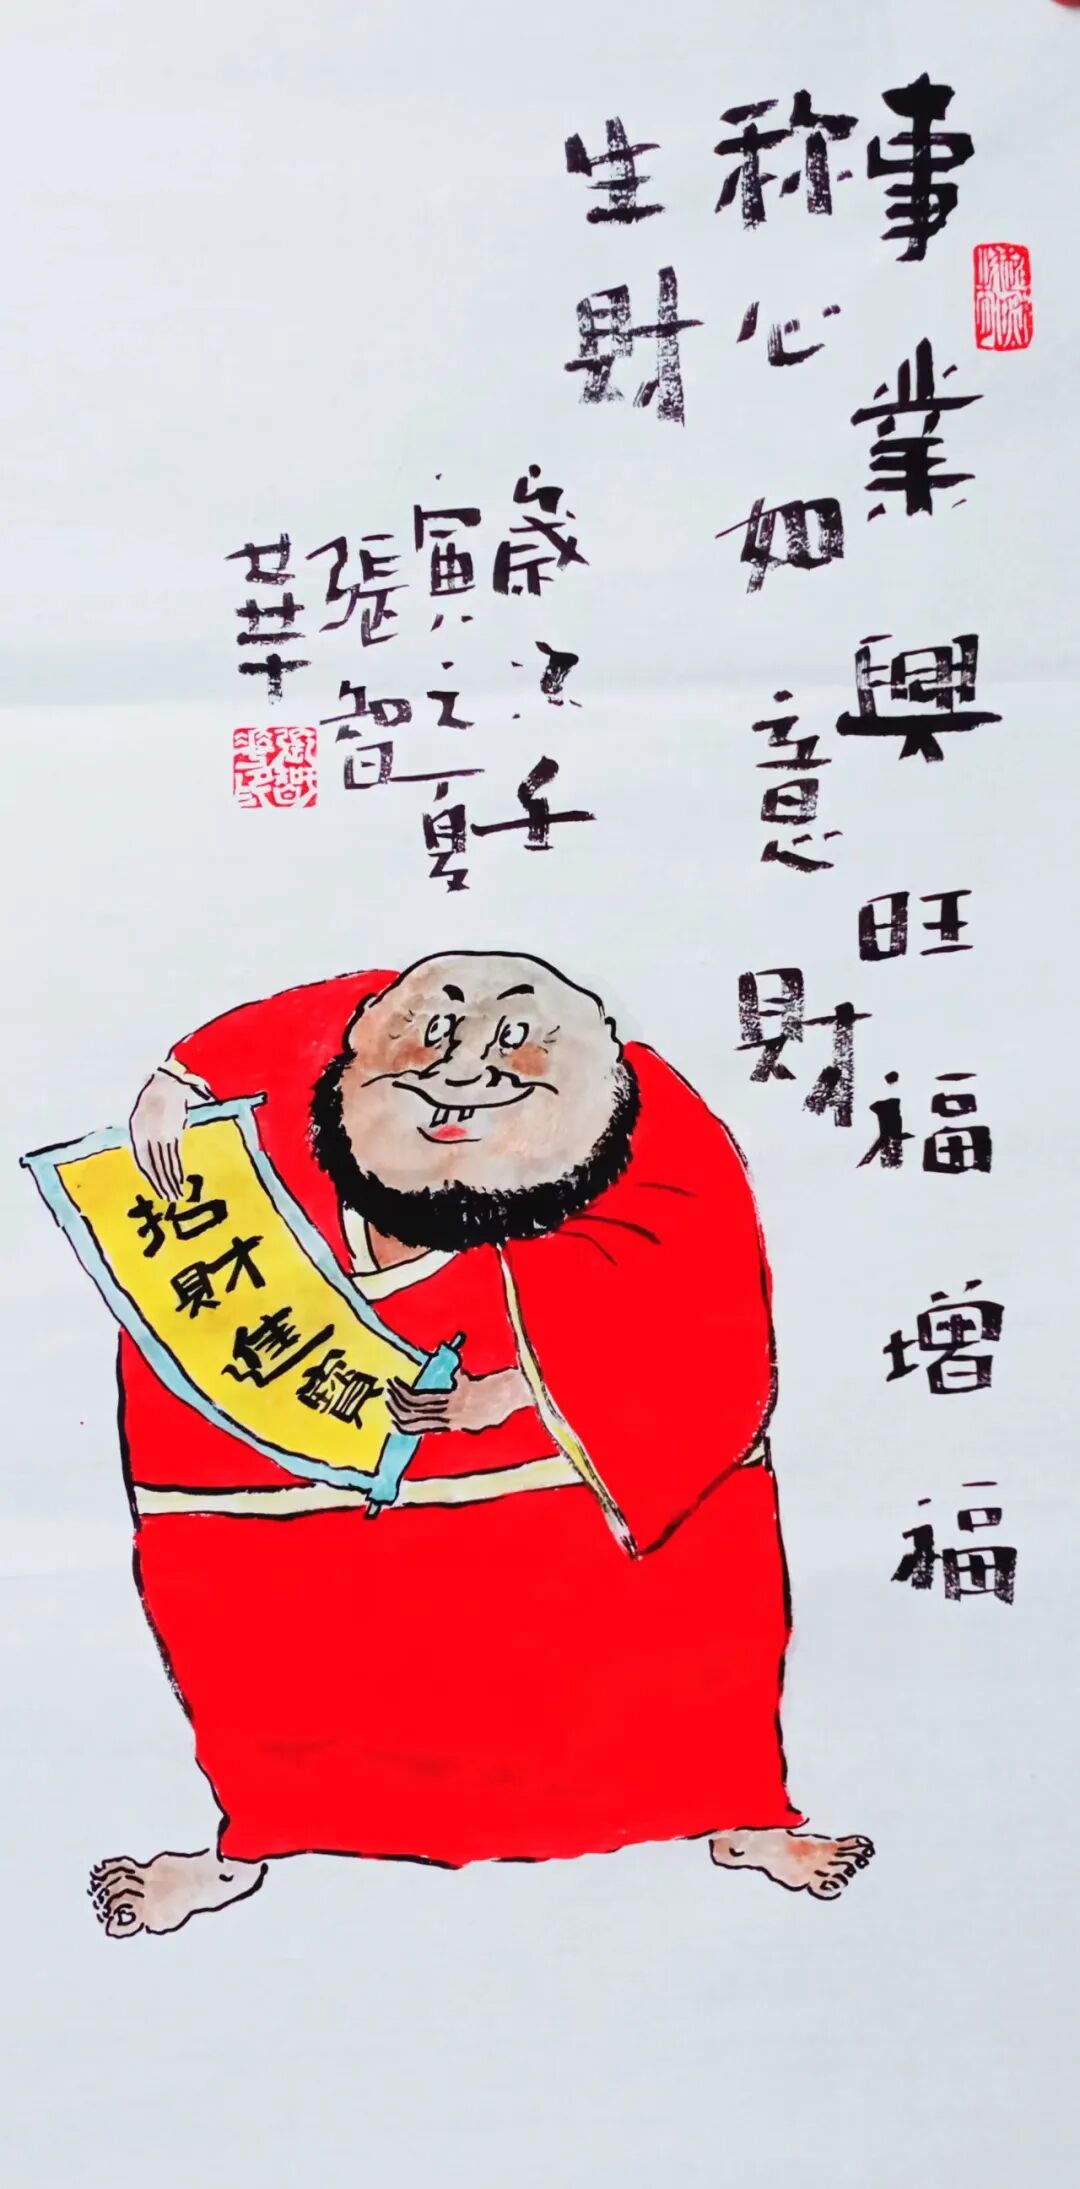 事業興旺福增福
称心如意財
生財
歲次壬
寅之夏
張智
華
招財進寶